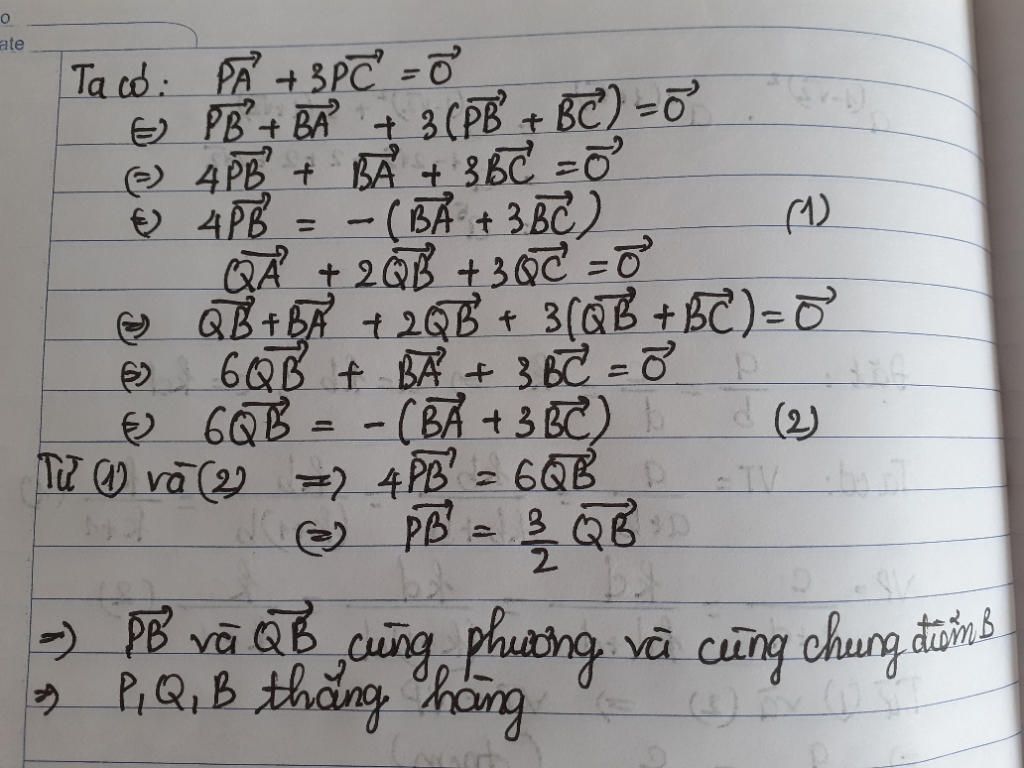 o
ate
Ta có: $\overrightarrow{PA} + 3\overrightarrow{PC} = \overrightarrow{0}$
⇔ $\overrightarrow{PB} + \overrightarrow{BA} + 3(\overrightarrow{PB} + \overrightarrow{BC}) = \overrightarrow{0}$
⇔ $4\overrightarrow{PB} + \overrightarrow{BA} + 3\overrightarrow{BC} = \overrightarrow{0}$
⇔ $4\overrightarrow{PB} = -(\overrightarrow{BA} + 3\overrightarrow{BC})$ (1)
$\overrightarrow{QA} + 2\overrightarrow{QB} + 3\overrightarrow{QC} = \overrightarrow{0}$
⇔ $\overrightarrow{QB} + \overrightarrow{BA} + 2\overrightarrow{QB} + 3(\overrightarrow{QB} + \overrightarrow{BC}) = \overrightarrow{0}$
⇔ $6\overrightarrow{QB} + \overrightarrow{BA} + 3\overrightarrow{BC} = \overrightarrow{0}$
⇔ $6\overrightarrow{QB} = -(\overrightarrow{BA} + 3\overrightarrow{BC})$ (2)
Từ (1) và (2) ⇒ $4\overrightarrow{PB} = 6\overrightarrow{QB}$
⇔ $\overrightarrow{PB} = \frac{3}{2}\overrightarrow{QB}$
⇒ $\overrightarrow{PB}$ và $\overrightarrow{QB}$ cùng phương và cùng chung điểm B
⇒ P, Q, B thẳng hàng